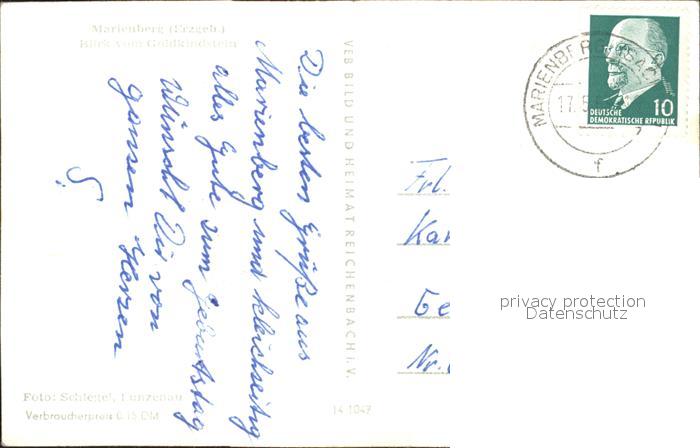 Marienberg (Erzgeb.)
Blick vom Goldkindstein
Die besten Grüße aus
Marienberg und kleichzeitig
alles Gute zum Geburtstag
wünscht Dir von
ganzen Herzen
S.
Foto: Schlegel, Lunzenau
Verbraucherpreis 0,15 DM
VEB BILD UND HEIMAT REICHENBACH i. V.
14 1047
MARIENBERG
17.5
f
10
DEUTSCHE
DEMOKRATISCHE REPUBLIK
Frl.
Kar
Ge
Nr.
privacy protection
Datenschutz